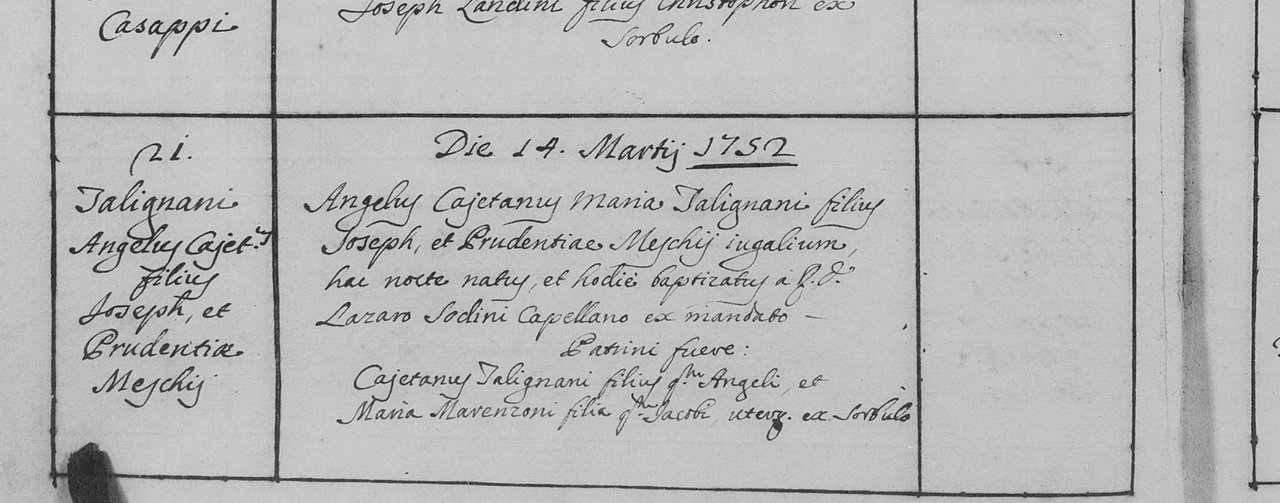 Casappi
Joseph Landini filius Christophori ex
Sorbulo.
21.
Talignani
Angelus Cajet.s
filius
Joseph, et
Prudentiæ
Meschij
Die 14. Martij 1752
Angelus Cajetanus Maria Talignani filius
Joseph, et Prudentiae Meschij iugalium,
hac nocte natus, et hodie baptizatus a
Lazaro Sodini Capellano ex mandato —
Patrini fuere:
Cajetanus Talignani filius qm Angeli, et
Maria Marenzoni filia qm Jacobi, uterq. ex Sorbulo